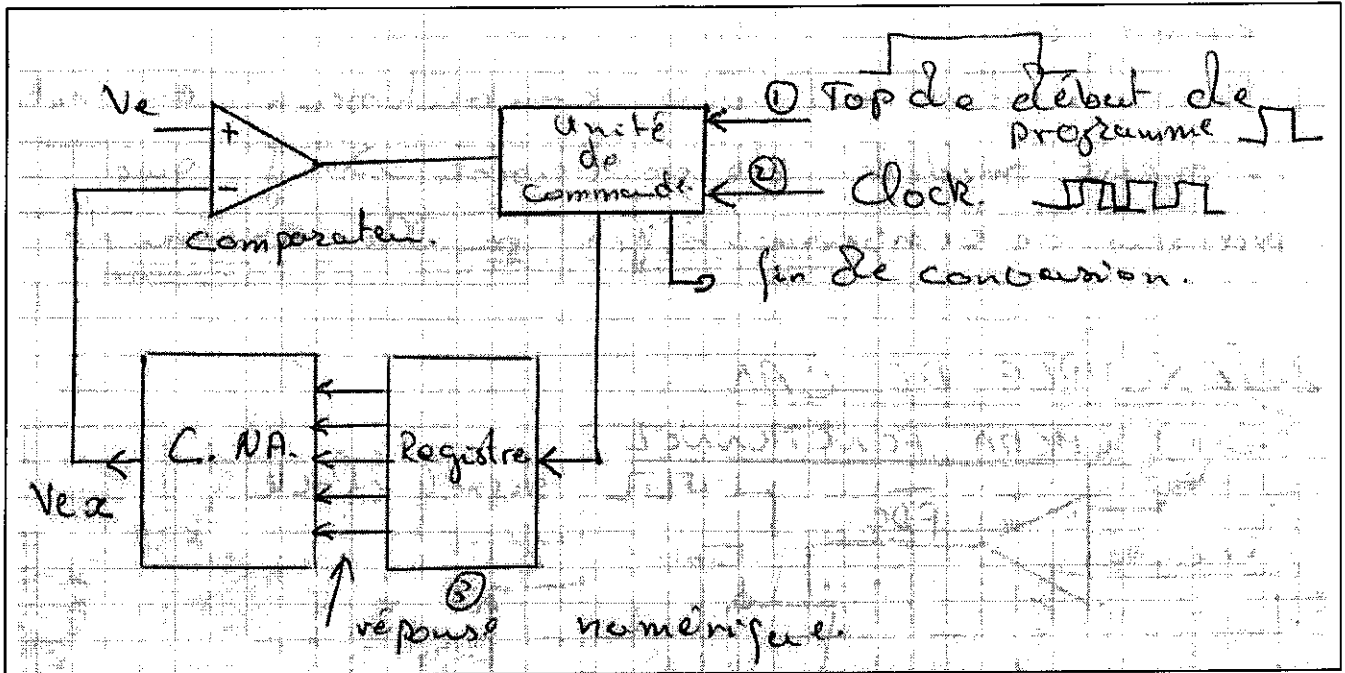 Ve
+
-
comparateu.
Unité
de
commande.
① Top de début de
programme
② Clock.
fin de conversion.
C. NA.
Registre
Ve x
③
réponse numérique.